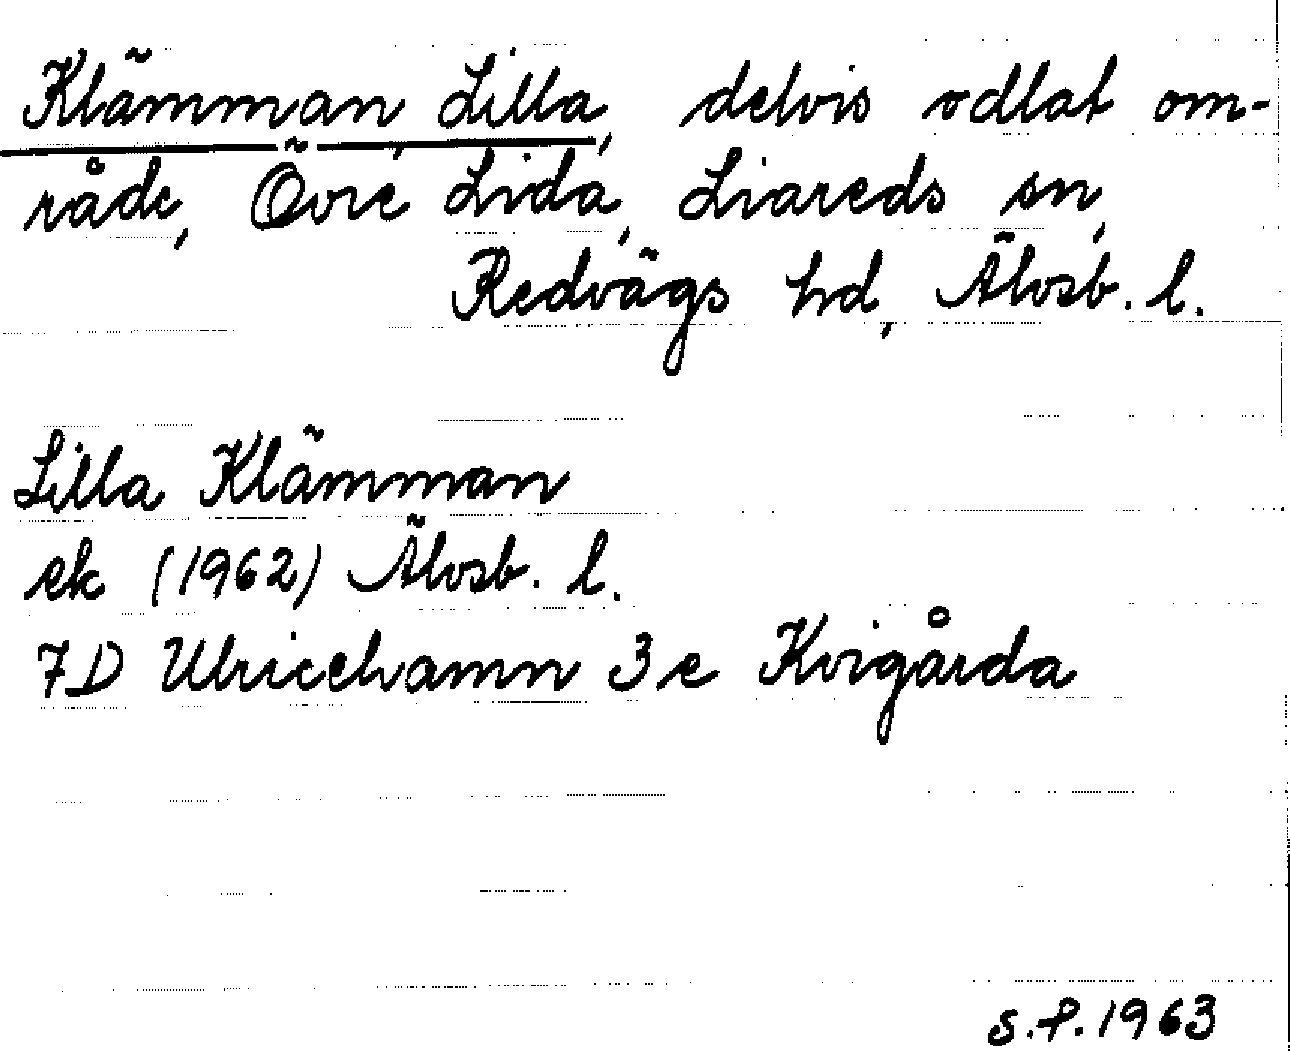 Klämman, Lilla, delvis odlat om-
råde, Övre Lida, Liareds sn,
Redvägs hd, Älvsb. l.
Lilla Klämman
ek (1962) Älvsb. l.
7D Ulricehamn 3e Kvigårda
s.f. 1963